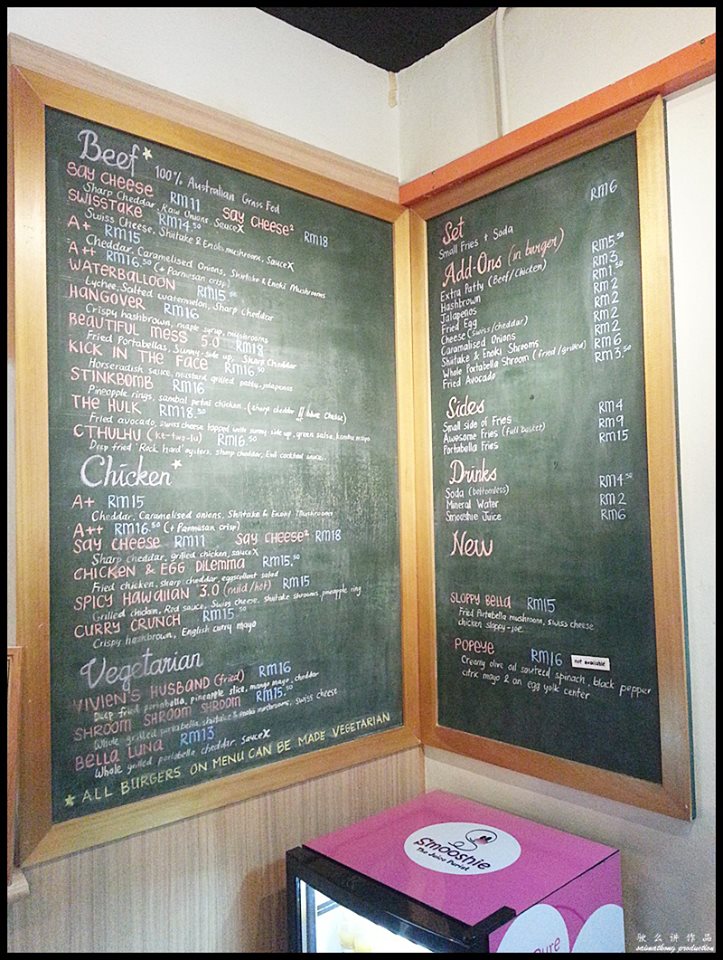 Beef* 100% Australian Grass Fed
SAY CHEESE RM11 SAY CHEESE² RM18
Sharp Cheddar, Raw Onions, SauceX
SWISSTAKE RM14.50
Swiss Cheese, Shiitake & Enoki mushroom, SauceX
A+ RM15
Cheddar, Caramelised Onions, Shiitake & Enoki Mushrooms
A++ RM16.50 (+ Parmesan crisp)
WATERBALLOON RM15.50
Lychee, Salted watermelon, Sharp Cheddar
HANGOVER RM16
Crispy hashbrown, maple syrup, mushrooms
BEAUTIFUL MESS 5.0 RM18
Fried Portabellas, Sunny side up, Sharp Cheddar
KICK IN THE FACE RM16.50
Horseradish sauce, mustard grilled patty, jalapenos
STINKBOMB RM16
Pineapple rings, sambal petai chicken (sharp cheddar
THE HULK RM18.50
Fried avocado, swiss cheese topped with sunny side up, green salsa, kombu mayo
CTHULHU (ke-two-lu) RM16.50
Deep fried 'Rock hard' oysters, sharp cheddar, cocktail sauce
Chicken*
A+ RM15
Cheddar, Caramelized onions, Shiitake & Enoki Mushrooms
A++ RM16.50 (+ Parmesan crisp)
SAY CHEESE RM11 SAY CHEESE² RM18
Sharp cheddar, grilled chicken, sauceX
CHICKEN & EGG DILEMMA RM15.50
Fried chicken, sharp cheddar, eggscellent salad
SPICY HAWAIIAN 3.0 (mild/hot) RM15
Grilled chicken, Red sauce, Swiss cheese, shiitake shrooms, pineapple ring
CURRY CRUNCH RM15.50
Crispy hashbrown, English curry mayo
Vegetarian
VIVIEN'S HUSBAND (fried) RM16
Deep fried portabella, pineapple slice, mango mayo, cheddar
SHROOM SHROOM SHROOM RM15.50
Whole grilled portabella, shiitake & enoki mushrooms, swiss cheese
BELLA LUNA RM13
Whole grilled portabella, cheddar, sauceX
* ALL BURGERS ON MENU CAN BE MADE VEGETARIAN
Set RM6
Small Fries + Soda
Add-Ons (in burger)
Extra Patty (Beef/Chicken) RM5.50
Hashbrown RM3
Jalapenos RM1.50
Fried Egg RM2
Cheese (swiss/cheddar) RM2
Caramelised Onions RM2
Shiitake & Enoki Shrooms RM2
Whole Portabella Shroom (fried/grilled) RM6
Fried Avocado RM3.50
Sides
Small side of Fries RM4
Awesome Fries (full basket) RM9
Portabella Fries RM15
Drinks
Soda (bottomless) RM4.50
Mineral Water RM2
Smooshie Juice RM6
New
SLOPPY BELLA RM15
Fried Portabella mushroom, swiss cheese
chicken sloppy-joe
POPEYE RM16 not available
Creamy olive oil sauteed spinach, black pepper
citric mayo & an egg yolk center
Smooshie
The Juice Purist
Pure
saimatkong production